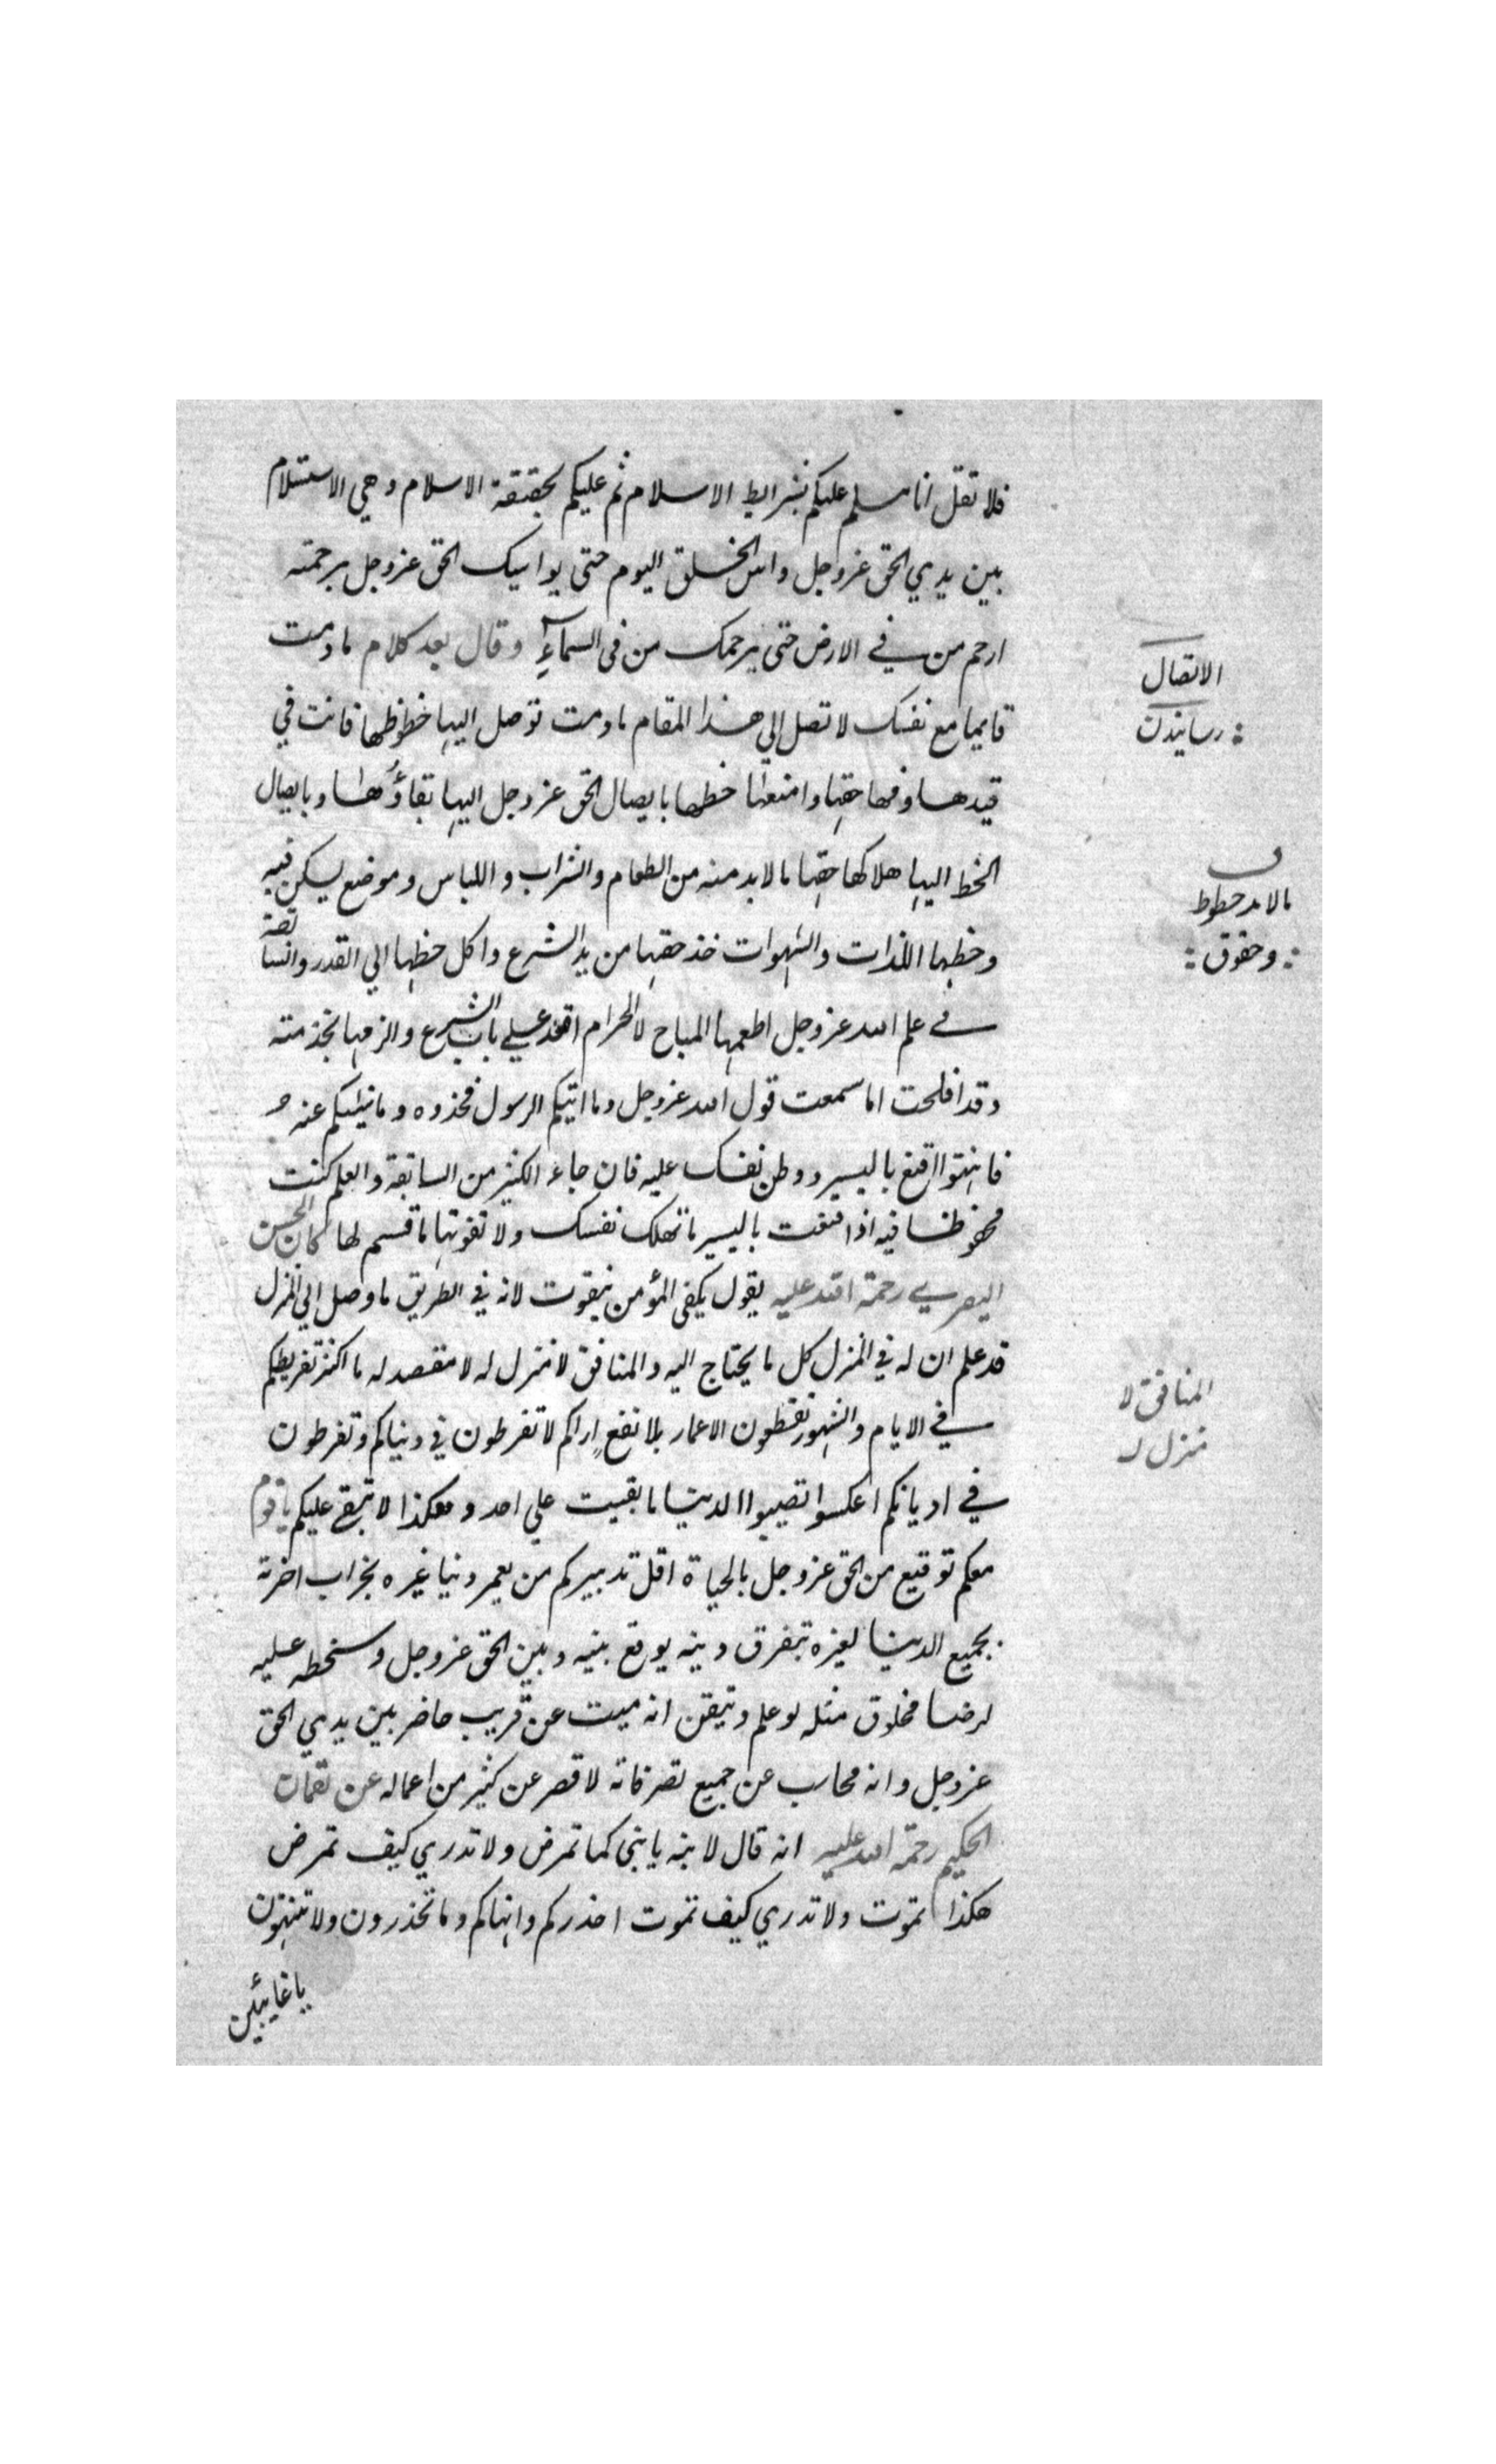 فلا تقل انا مسلم عليكم بشرايط الاسلام ثم عليكم بحقيقة الاسلام وهي الاستسلام
بين يدي الحق عزوجل واس الخلق اليوم حتى يواسيك الحق عزوجل برحمته
ارحم من في الارض حتى يرحمك من في السماء وقال بعد كلام مادمت
قايما مع نفسك لا تصل الي هذا المقام مادمت توصل اليها حظوظها فانت في
قيدها وفها حقها وامنعها حظها بايصال الحق عزوجل اليها بقاؤها وبايصال
الحظ اليها هلاكها حقها مالابد منه من الطعام والشراب واللباس وموضع يسكن فيه
وحظها اللذات والشهوات خذ حقها من يد الشرع وا كل حظها الي القدر والسابقة
في علم الله عزوجل اطعمها المباح لا الحرام اقعد علي باب الشرع والزمها بخدمته
وقد افلحت اما سمعت قول الله عزوجل وما اتيكم الرسول فخذوه وما نهيكم عنه
فانتهوا اقنع باليسير ووطن نفسك عليه فان جاء الكثير من السابقة والعلم كنت
محفوظا فيه اذا قنعت باليسير ما تهلك نفسك ولا تفوتها ما قسم لها كان الحسن
البصري رحمة الله عليه يقول يكفي المؤمن بقوت لانه في الطريق ما وصل الي المنزل
قد علم ان له في المنزل كل ما يحتاج اليه والمنافق لا منزل له لا مقصد له ما اكثر تفريطكم
في الايام والشهور تقطعون الاعمار بلا نفع اراكم لا تفرطون في دنياكم وتفرطون
في اديانكم اعكسوا تصيبوا الدنيا ما بقيت علي احد وهكذا لا تبقي عليكم يا قوم
معكم توقيع من الحق عزوجل بالحياة اقل تدبيركم من يعمر دنيا غيره بخراب اخرته
بجميع الدنيا لغيره بتفرق دينه يوقع بينه وبين الحق عزوجل وسخطه عليه
لرضا مخلوق مثله لو علم وتيقن انه ميت عن قريب حاضر بين يدي الحق
عزوجل وانه محاسب عن جميع تصرفاته لاقصر عن كثير من اعماله عن لقمان
الحكيم رحمة الله عليه انه قال لابنه يا بني كما تمرض ولا تدري كيف تمرض
هكذا تموت ولا تدري كيف تموت احذركم وانهاكم وما تحذرون ولا تنتهون
يا غايبين
الاتصال
رسانيدن
مالابد حظوظ
وحقوق
المنافق لا
منزل له